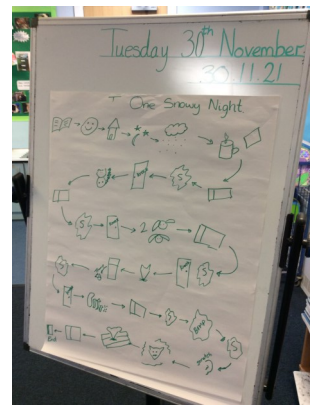 Tuesday 30th November
30.11.21
One Snowy Night
S
S
2
S
S
S
S